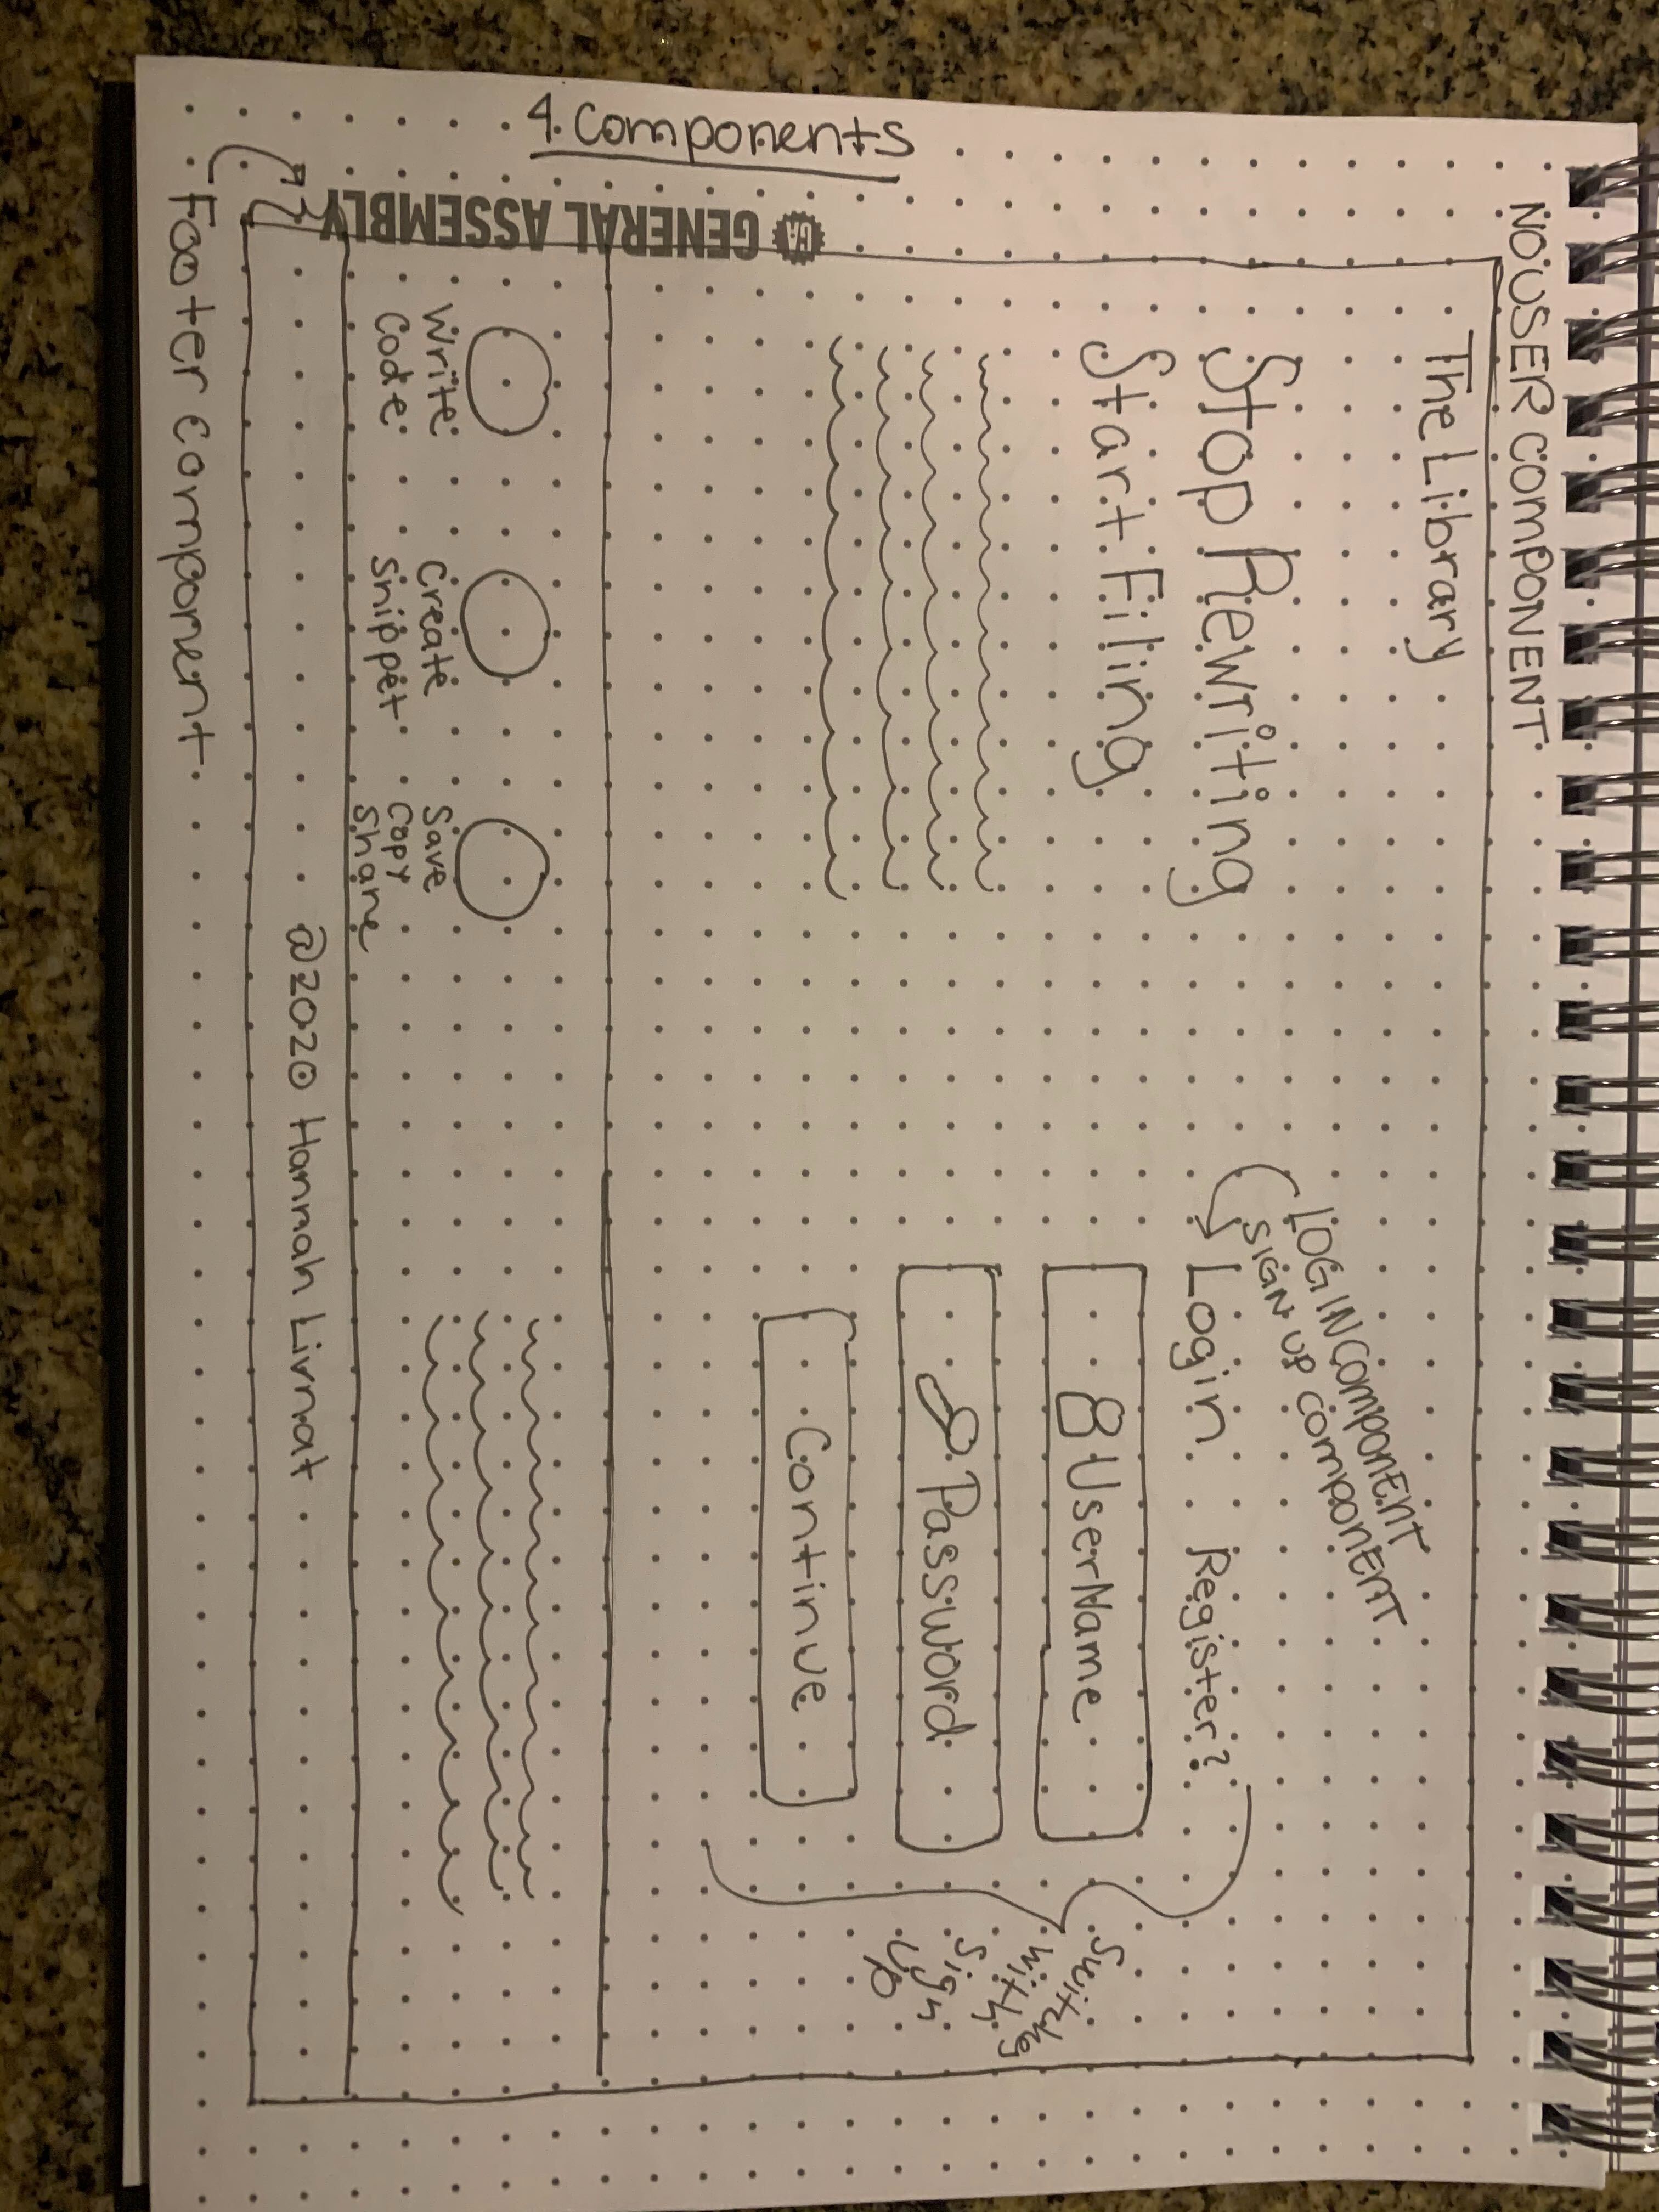 4. Components
GENERAL ASSEMBLY
GA
NO USER COMPONENT
The Library
Stop Rewriting
Start Filing
LOG IN COMPONENT
SIGN UP COMPONENT
Login Register?
UserName
Password
Continue
Switches
with
Sign
Up
Write
Code
Create
Snippet
Save
Copy
Share
@2020 Hannah Livnat
Footer component